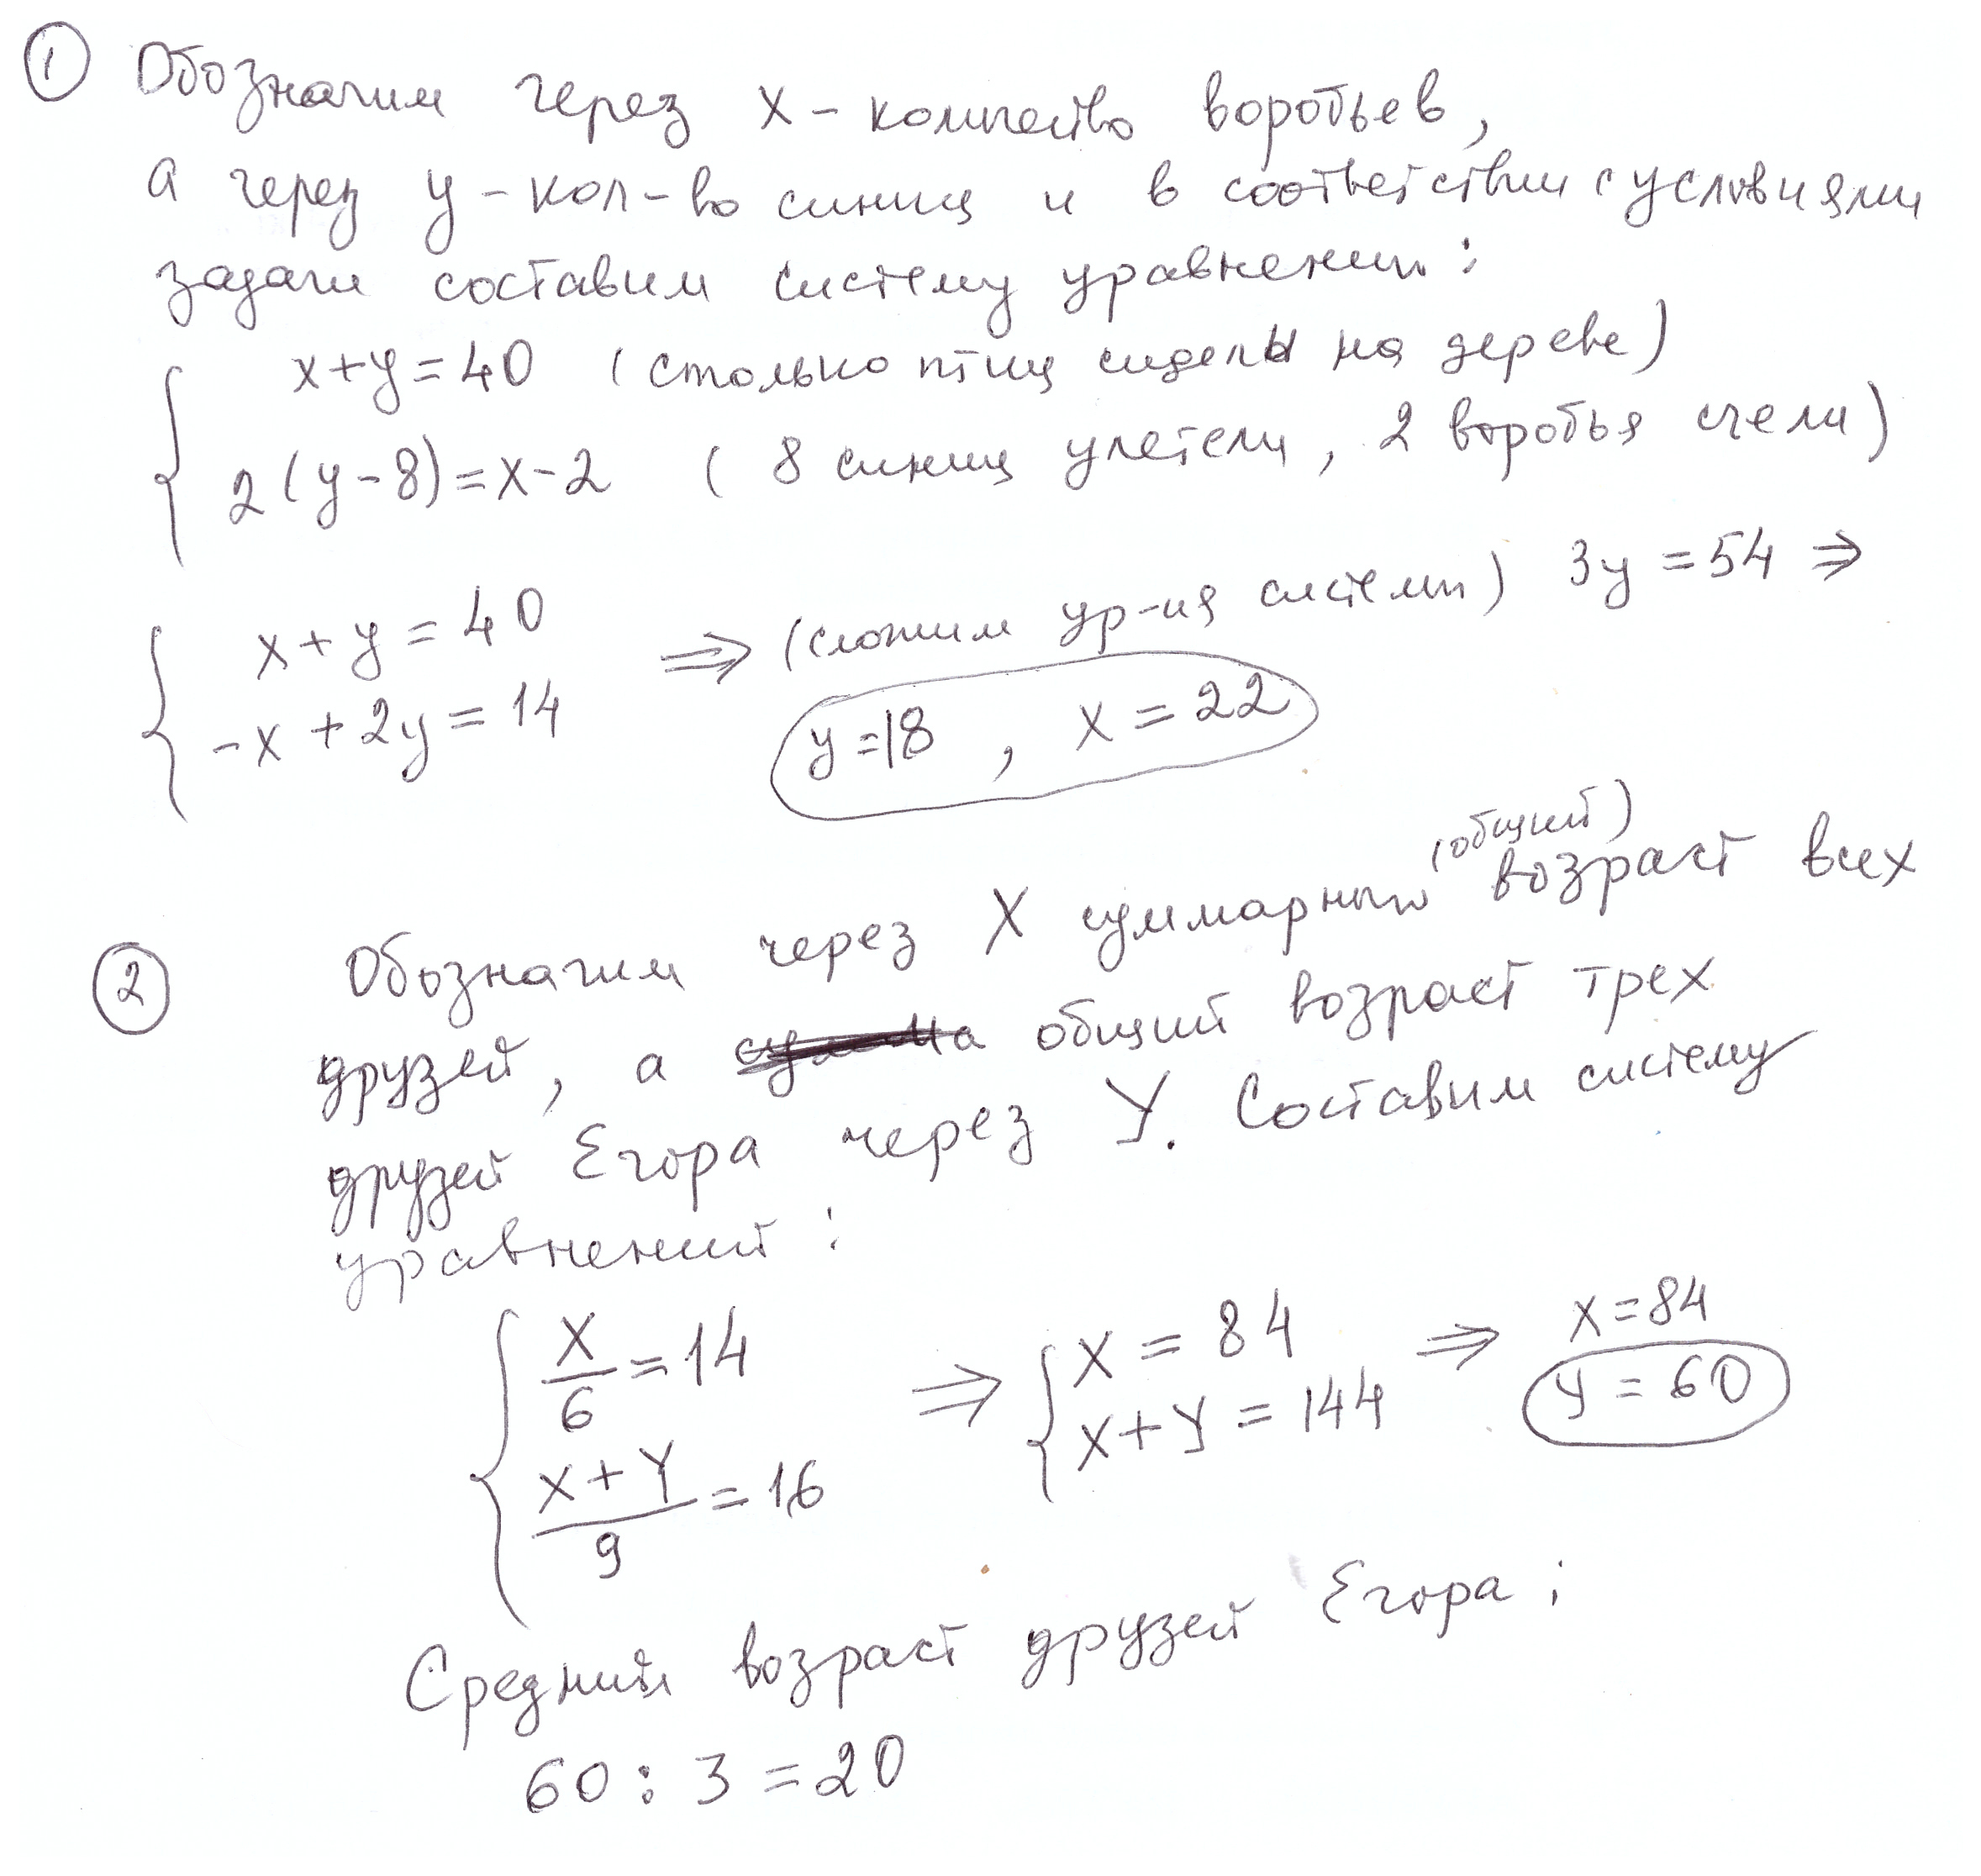 ① Обозначим через x - количество воробьев,
а через y - кол-во синиц и в соответствии с условиями
задачи составим систему уравнений:
x+y=40 (столько птиц сидели на дереве)
2(y-8)=x-2 (8 синиц улетели, 2 воробья)
x+y=40
-x+2y=14
⇒ (сложим ур-ия системы) 3y=54 ⇒
y=18, x=22
(общий)
② Обозначим через X суммарный возраст всех
друзей, а общий возраст трех
друзей Егора через У. Составим систему
уравнений:
X/6=14
X+Y/9=16
⇒ X=84
X+Y=144
⇒ X=84
y=60
Средний возраст друзей Егора:
60:3=20